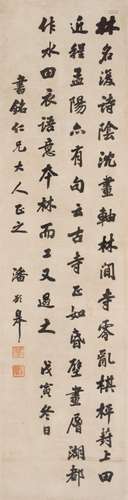 林君復詩陰沈畫軸林間寺零亂棋枰葑上田
近程孟陽亦有句云古寺正如昏壁畫層湖都
作水田衣語意本林而工又過之 戊寅冬日
書銘仁兄大人正之 潘齡皋